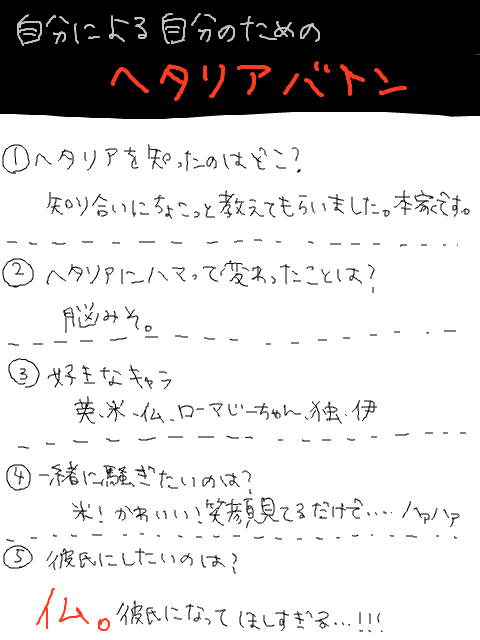 自分による自分のための
ヘタリアバトン
①ヘタリアを知ったのはどこ?
知り合いにちょこっと教えてもらいました。本家です。
②ヘタリアにハマって変わったことは?
脳みそ。
③好きなキャラ
英、米、仏、ローマじーちゃん、独、伊
④一緒に騒ぎたいのは?
米!かわいい!笑顔見てるだけで……ハァハァ
⑤彼氏にしたいのは?
仏。彼氏になってほしすぎる…!!!